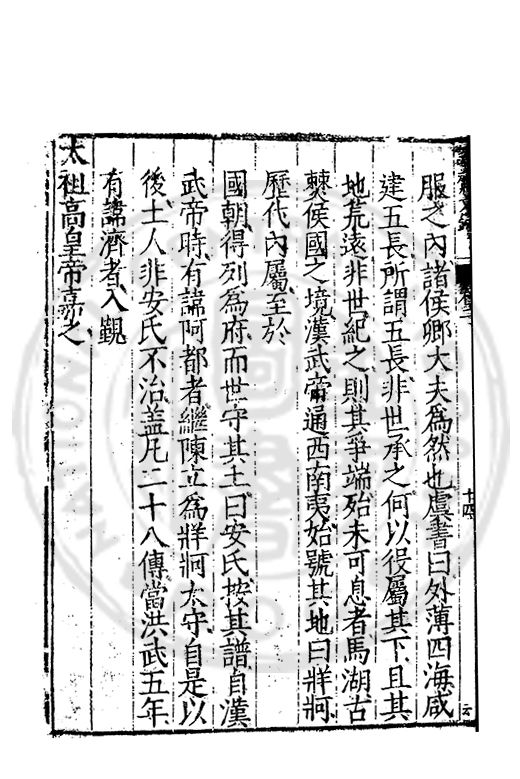 服之內諸侯卿大夫為然也虞書曰外薄四海咸
建五長所謂五長非世承之何以役屬其下且其
地荒遠非世紀之則其爭端殆未可息者馬湖古
僰侯國之境漢武帝通西南夷始號其地曰牂牁
歷代內屬至於
國朝得列為府而世守其土曰安氏按其譜自漢
武帝時有諱阿都者繼陳立為牂牁太守自是以
後土人非安氏不治盖凡二十八傳當洪武五年
有諱濟者入覲
太祖高皇帝嘉之
十四